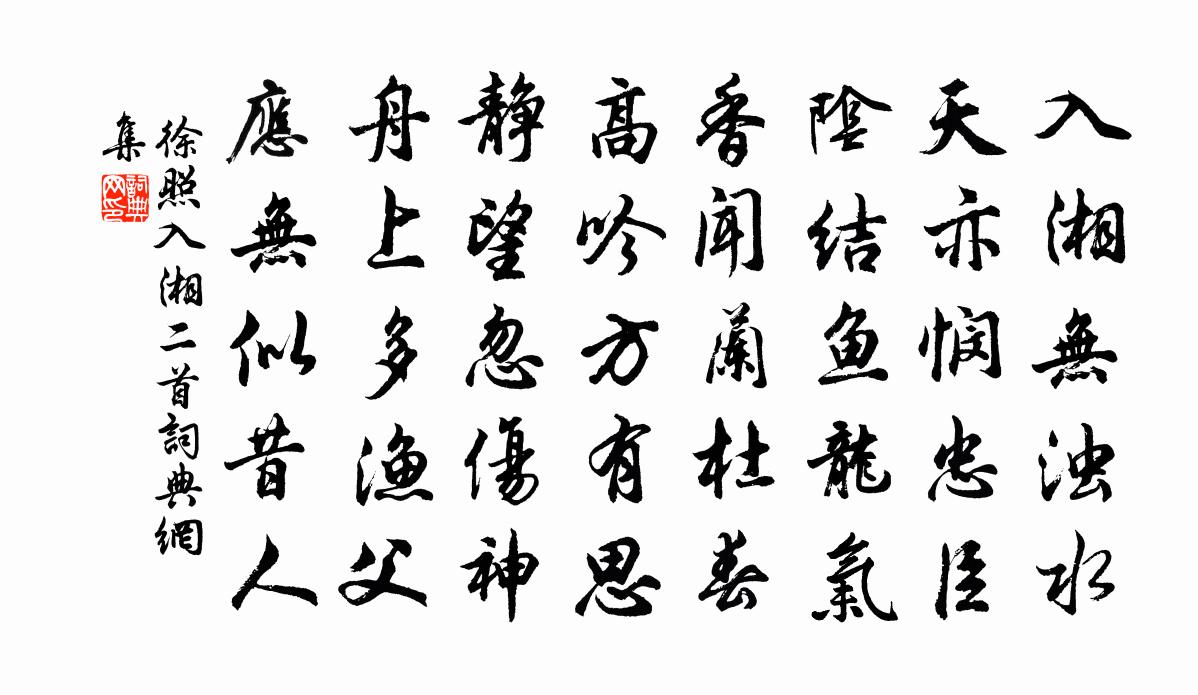 入湘無浊水
天亦悯忠臣
陰結鱼龍氣
香聞蘭杜春
高吟方有思
静望忽傷神
舟上多漁父
應無似昔人
徐照入湘二首詞典網
集
詞典
网印